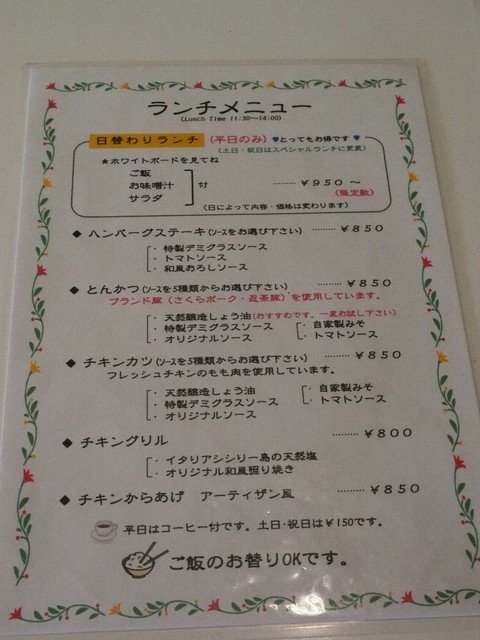 ランチメニュー
(Lunch Time 11:30～14:00)
日替わりランチ (平日のみ) ♥とってもお得です♥
(土日・祝日はスペシャルランチに変更)
★ホワイトボードを見てね
ご飯
お味噌汁 付 ……… ¥950～
サラダ (限定数)
(日によって内容・価格は変わります)
◆ ハンバーグステーキ(ソースをお選び下さい) ……… ¥850
・特製デミグラスソース
・トマトソース
・和風おろしソース
◆ とんかつ(ソースを5種類からお選び下さい) ……… ¥850
ブランド豚(さくらポーク・忍茶豚)を使用しています。
・天然醸造しょう油(おすすめです。一度お試し下さい)
・特製デミグラスソース ・自家製みそ
・オリジナルソース ・トマトソース
◆ チキンカツ(ソースを5種類からお選び下さい) ……… ¥850
フレッシュチキンのもも肉を使用しています。
・天然醸造しょう油 ・自家製みそ
・特製デミグラスソース ・トマトソース
・オリジナルソース
◆ チキングリル ……… ¥800
・イタリアシシリー島の天然塩
・オリジナル和風照り焼き
◆ チキンからあげ アーティザン風 ……… ¥850
平日はコーヒー付です。土日・祝日は¥150です。
ご飯のお替りOKです。